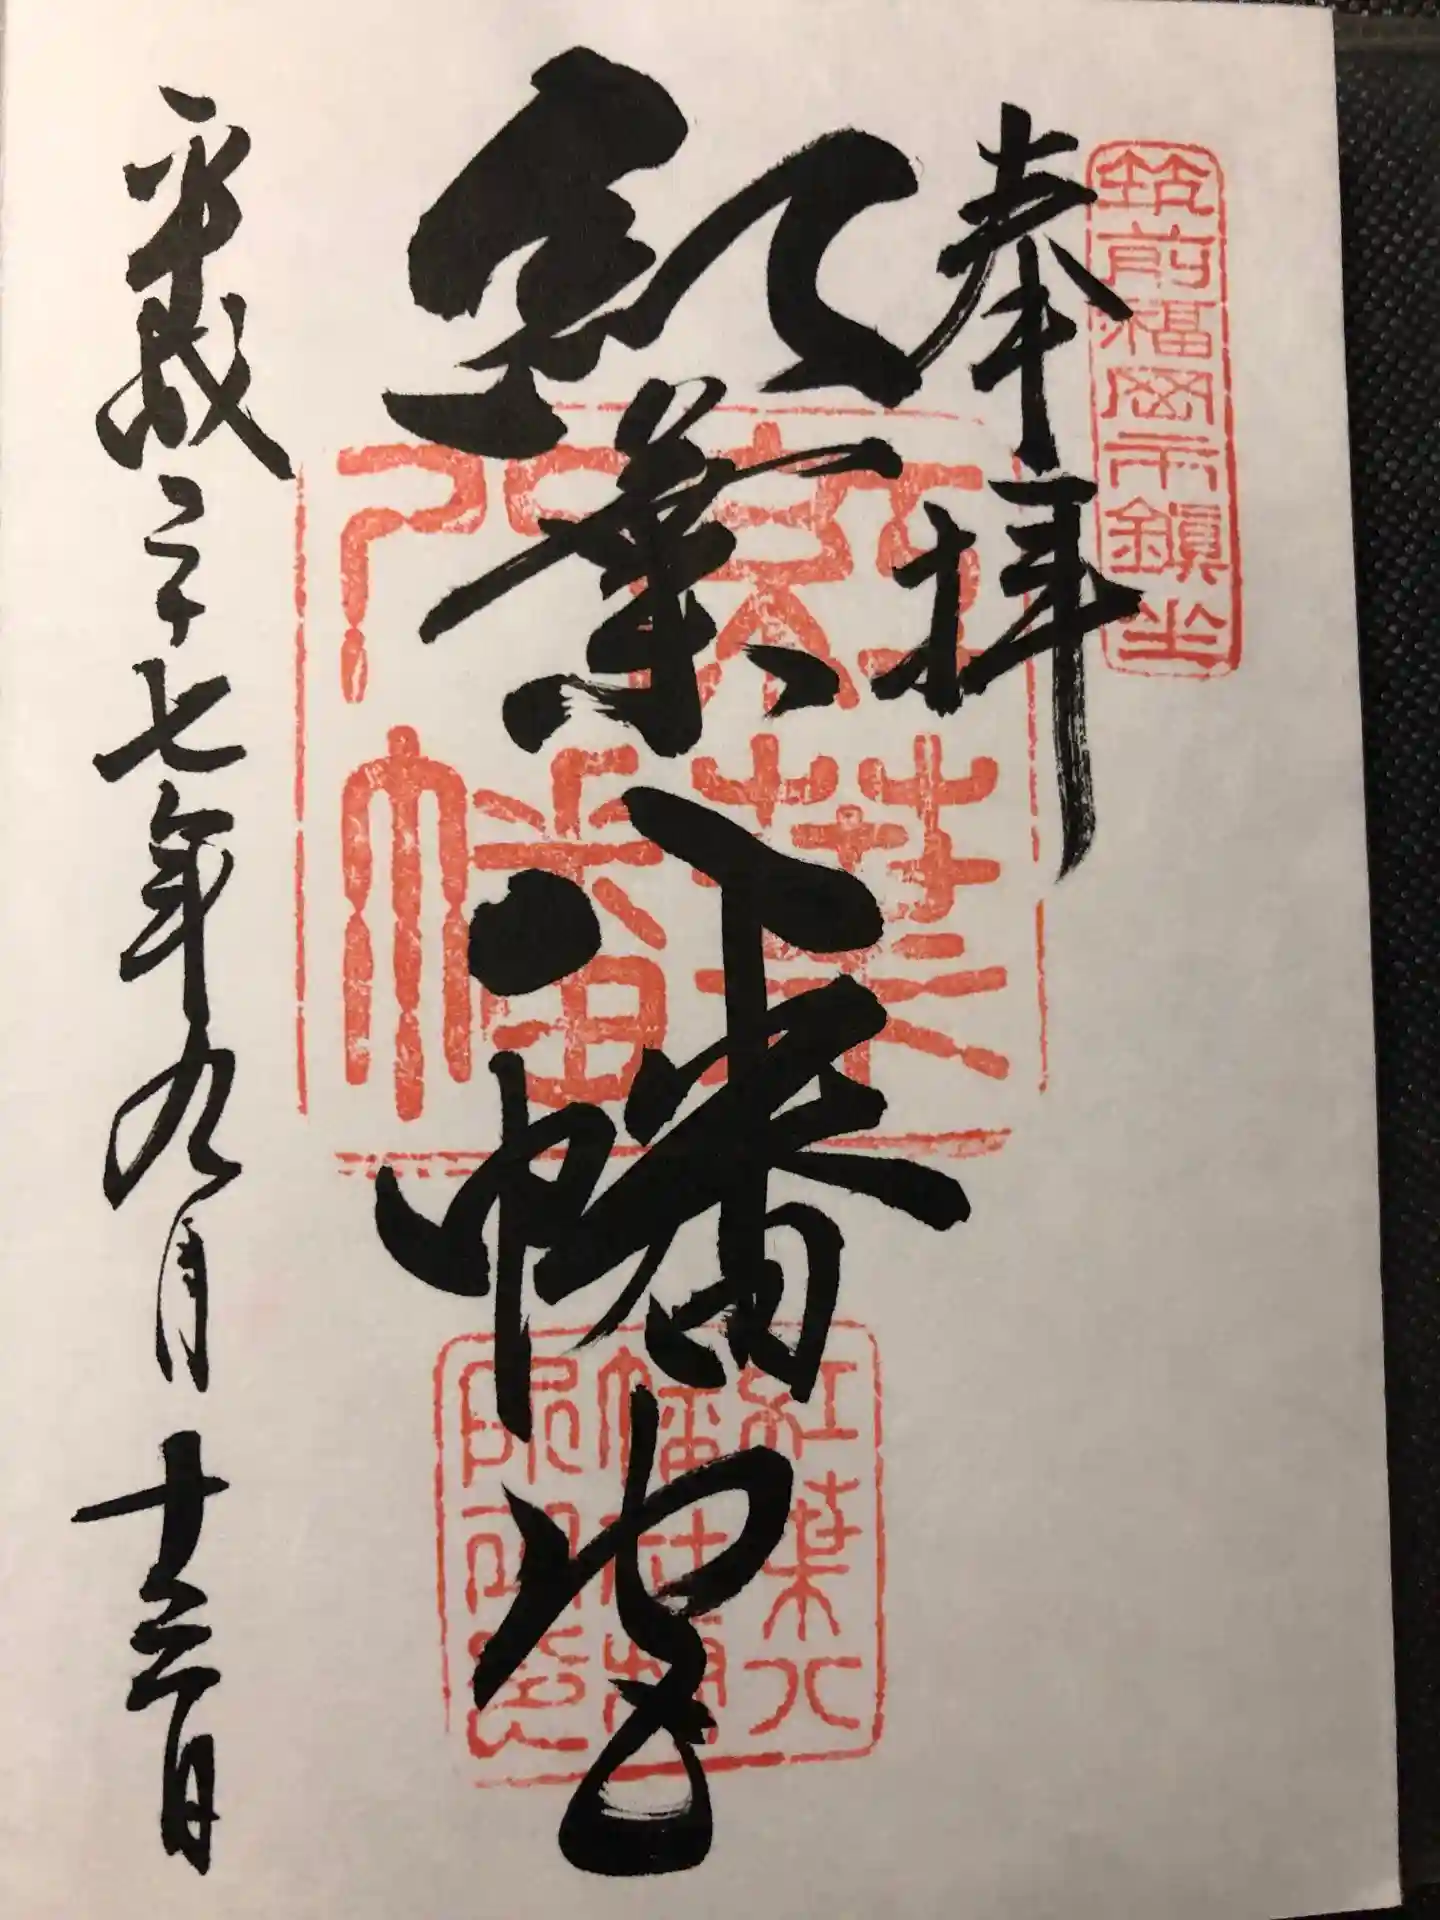 筑前福岡市鎭坐
奉拝
紅葉八幡宮
平成二十七年九月十三日
紅葉
八幡
紅葉八